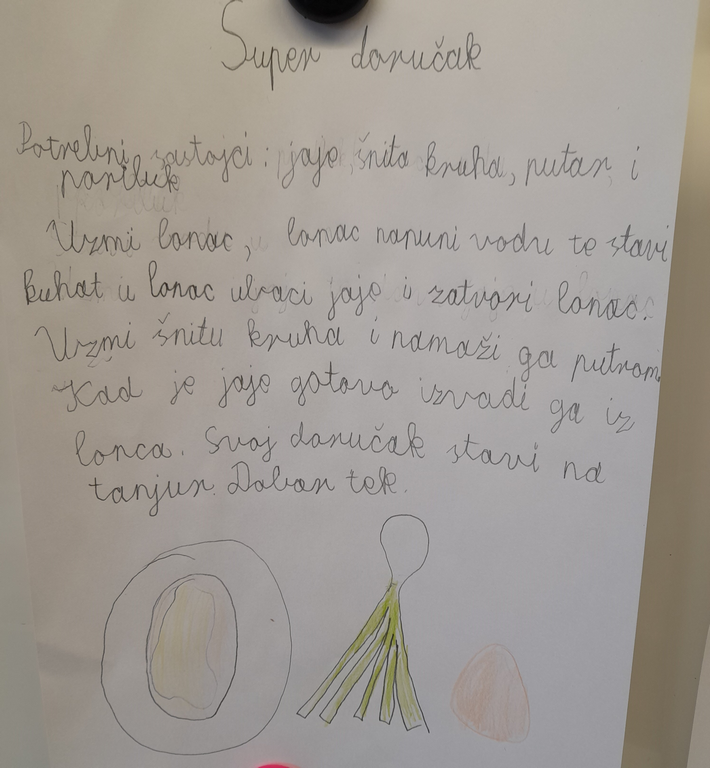 Super doručak
Potrebni sastojci: jaje, šnita kruha, putar i
poriluk
Uzmi lonac, lonac napuni vodu te stavi
kuhat u lonac ubaci jaje i zatvori lonac.
Uzmi šnitu kruha i namaži ga putrom
Kad je jaje gotovo izvadi ga iz
lonca. Svoj doručak stavi na
tanjur. Dobar tek.